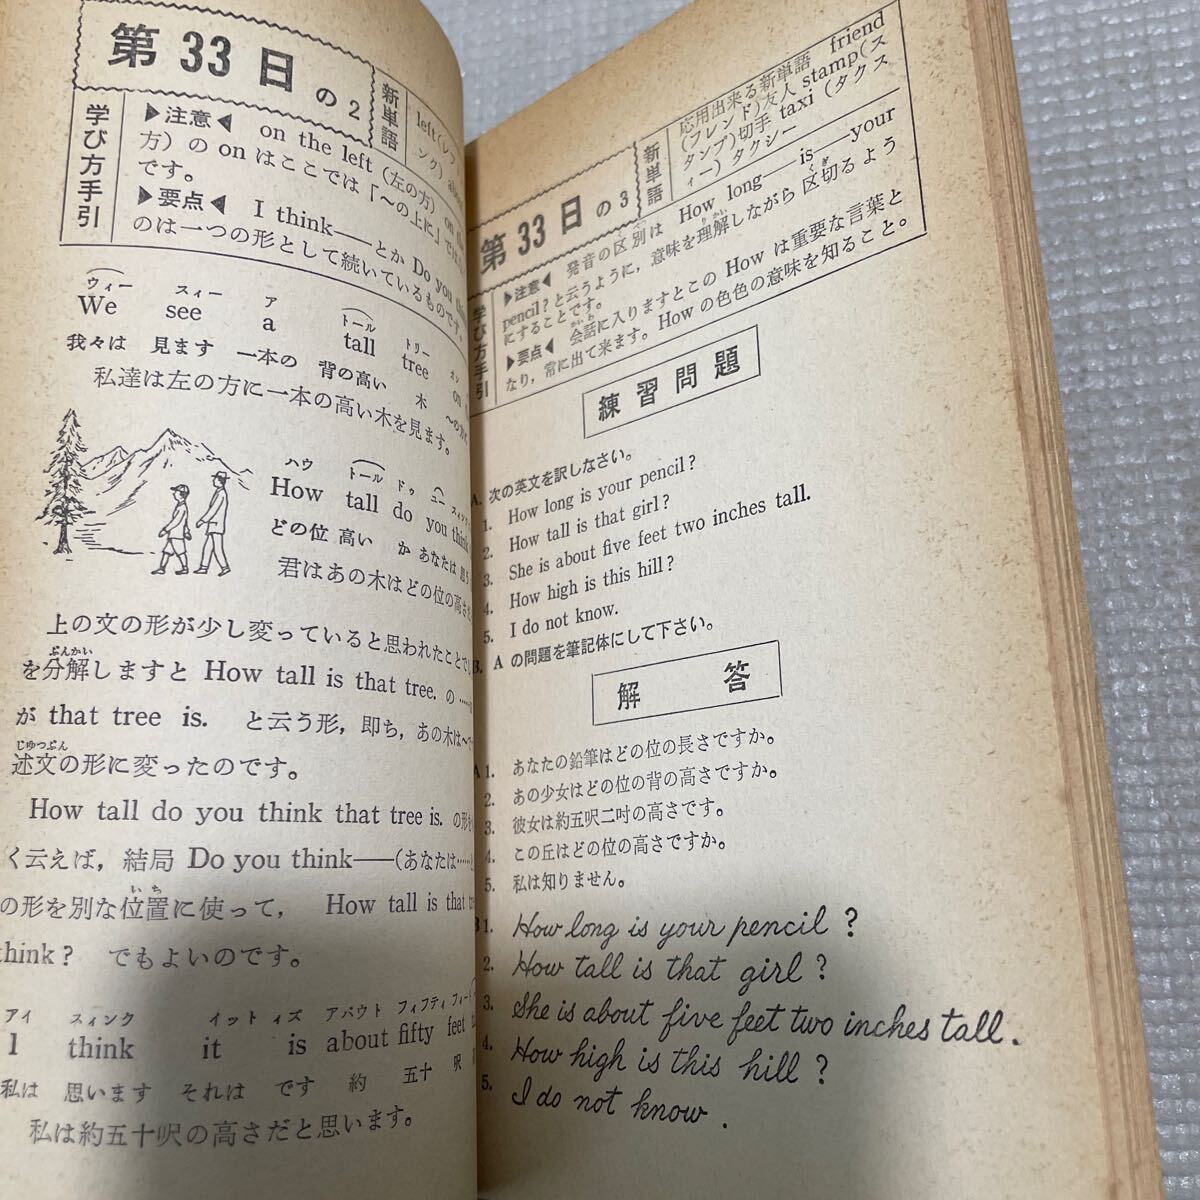 第 33 日 の 2
新単語
left(レフ
ンク) abou
学び方手引
▶注意◀ on the left (左の方) on the
方) の on はここでは「〜の上に」では
です。
▶要点◀ I think——とか Do you thi
のは一つの形として続いているものです。
ウィー スィー ア トール トリー オン
We see a tall tree on
我々は 見ます 一本の 背の高い 木 〜の方に
私達は左の方に一本の高い木を見ます。
ハウ トール ドゥ ユー スィンク
How tall do you think
どの位 高い か あなたは 思う
君はあの木はどの位の高さだ
上の文の形が少し変っていると思われたことでし
を分解しますと How tall is that tree. の……
ぶんかい
が that tree is. と云う形，即ち，あの木は〜で
じゅつぶん
述文の形に変ったのです。
How tall do you think that tree is. の形を
く云えば，結局 Do you think——(あなたは……と
の形を別な位置に使って， How tall is that tree
いち
think? でもよいのです。
アイ スィンク イット イズ アバウト フィフティ フィート
I think it is about fifty feet ta
私は 思います それは です 約 五十 呎
私は約五十呎の高さだと思います。
第 33 日 の 3
新単語
応用出来る新単語 friend
(フレンド)友人 stamp(ス
タンプ)切手 taxi (タクス
ィー) タクシー
学び方手引
▶注意◀ 発音の区別は How long——is——your
pencil? と云うように，意味を理解しながら区切るよう
にすることです。
▶要点◀ 会話に入りますとこの How は重要な言葉と
なり，常に出て来ます。How の色色の意味を知ること。
練習問題
A. 次の英文を訳しなさい。
1. How long is your pencil?
2. How tall is that girl?
3. She is about five feet two inches tall.
4. How high is this hill?
5. I do not know.
B. A の問題を筆記体にして下さい。
解 答
A 1. あなたの鉛筆はどの位の長さですか。
2. あの少女はどの位の背の高さですか。
3. 彼女は約五呎二吋の高さです。
4. この丘はどの位の高さですか。
5. 私は知りません。
B 1. How long is your pencil?
2. How tall is that girl?
3. She is about five feet two inches tall.
4. How high is this hill?
5. I do not know.